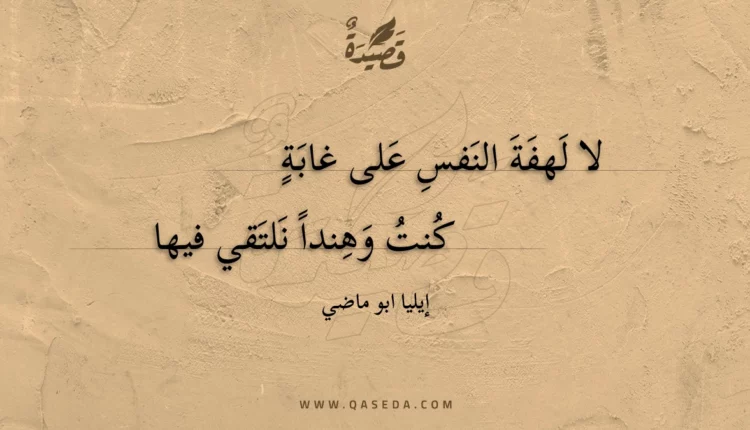 قَصِيْدَةٌ
لا لَهفَةَ النَفسِ عَلى غابَةٍ
كُنتُ وَهِنداً نَلتَقي فيها
إيليا ابو ماضي
WWW.QASEDA.COM